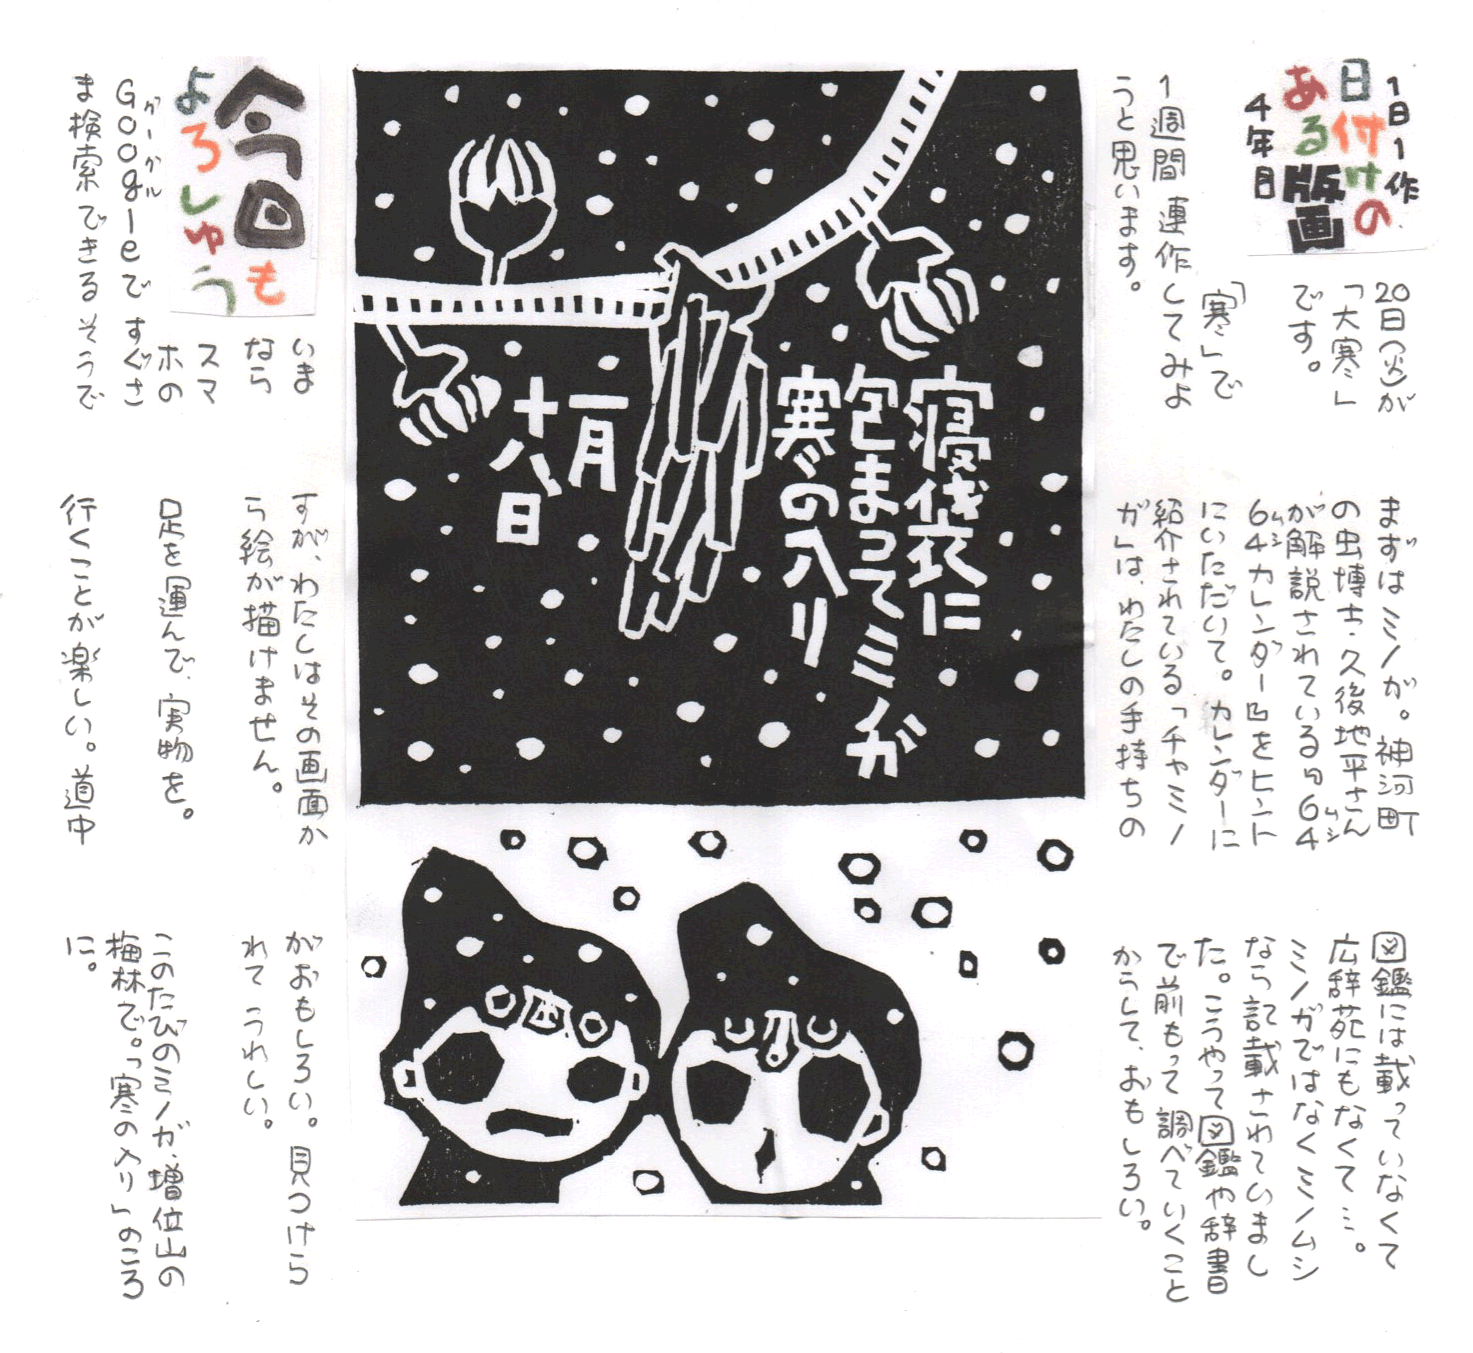 1日1作
日付けの
ある版画
4年目
20日(火)が
「大寒」
です。
「寒」で
1週間連作してみよ
うと思います。
まずはミノガ。神河町
の虫博士・久後地平さん
が解説されている『64
ムシ
64カレンダー』をヒント
ムシ
にいただいて。カレンダーに
紹介されている「チャミノ
ガ」は、わたしの手持ちの
図鑑には載っていなくて
広辞苑にもなくて…。
ミノガではなくミノムシ
なら記載されていまし
た。こうやって図鑑や辞書
で前もって調べていくこと
からして、おもしろい。
寝袋に
包まってミノガ
寒の入り
一月
十八日
今回も
よろしゅう
いま
なら
スマ
ホの
Googleですぐさ
グーグル
ま検索できるそうで
すが、わたしはその画面か
ら絵が描けません。
足を運んで、実物を。
行くことが楽しい。道中
がおもしろい。見つけら
れてうれしい。
このたびのミノガ、増位山の
梅林で。「寒の入り」のころ
に。